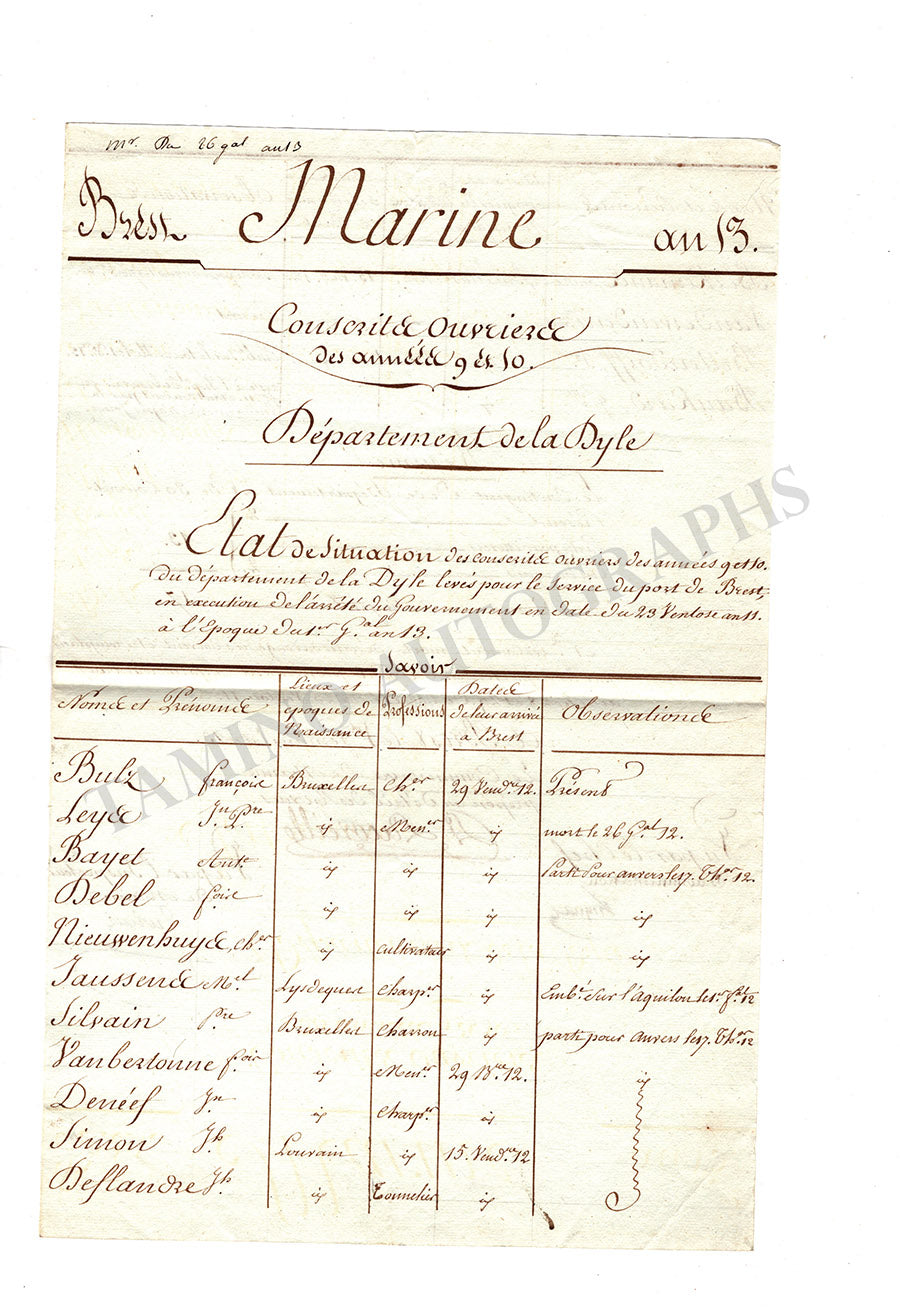 Mr. Du 26 gal an 13
Brest Marine an 13.
Conscrits ouvriers
des années 9 et 10.
Département de la Dyle
Etat de Situation des conscrits ouvriers des années 9 et 10.
du département de la Dyle levés pour le Service du port de Brest,
en execution de l'arrêté du Gouvernement en date du 23 Ventose an 11.
à l'Epoque du 1er G.al an 13.
Savoir
Noms et Prénoms | Lieux et époques de Naissance | Professions | Dates de leur arrivée à Brest | Observations
Bulz françois | Bruxelles | Ch.er | 29 Vend.re 12. | Présent
Leys Jn Pre | id | Men.er | id | mort le 26 G.al 12.
Bayet Ant.e | id | id | id | Parti Pour anvers le 17. Th.or 12
Debel fois | id | id | id | id
Nieuwenhuys, ch.er | id | cultivateur | id | id
Jaussens M.el | Lysdequest | Charp.er | id | Emb.é Sur l'Aquilon le 1er f.al 12
Silvain Pre | Bruxelles | Charron | id | parti pour anvers le 17. Th.or 12
Vanbertonne fois | id | Men.er | 29 Vre 12. | id
Denéef Jn | id | Charp.er | id
Simon Jh | Louvain | id | 15. Vend.re 12
Deflandre Jh. | id | Tonnelier | id
TAMINO AUTOGRAPHS